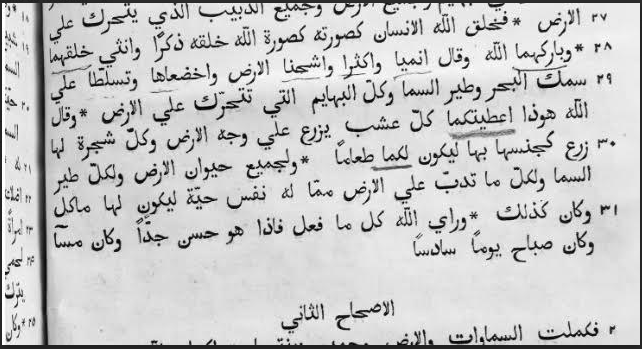 وجميع الدبيب الذي يتحرك علي
٢٧ الارض * فخلق الله الانسان كصورته كصورة الله خلقه ذكرًا وانثي خلقهما
٢٨ * وباركهما الله وقال انميا واكثرا واشحنا الارض واخضعاها وتسلّطا علي
٢٩ سمك البحر وطير السما وكلّ البهايم التي تتحرّك علي الارض * وقال
الله هوذا اعطيتكما كلّ عشب يزرع علي وجه الارض وكلّ شجرة لها
٣٠ زرع كجنسها بها ليكون لكما طعاماً * ولجميع حيوان الارض ولكلّ طير
السما ولكلّ ما تدبّ علي الارض ممّا له نفس حيّة ليكون لها ماكل
٣١ وكان كذلك * وراي الله كل ما فعل فاذا هو حسن جدّاً وكان مسآ
وكان صباح يوماً سادساً
الاصحاح الثاني
٢ فكملت السماوات والارض